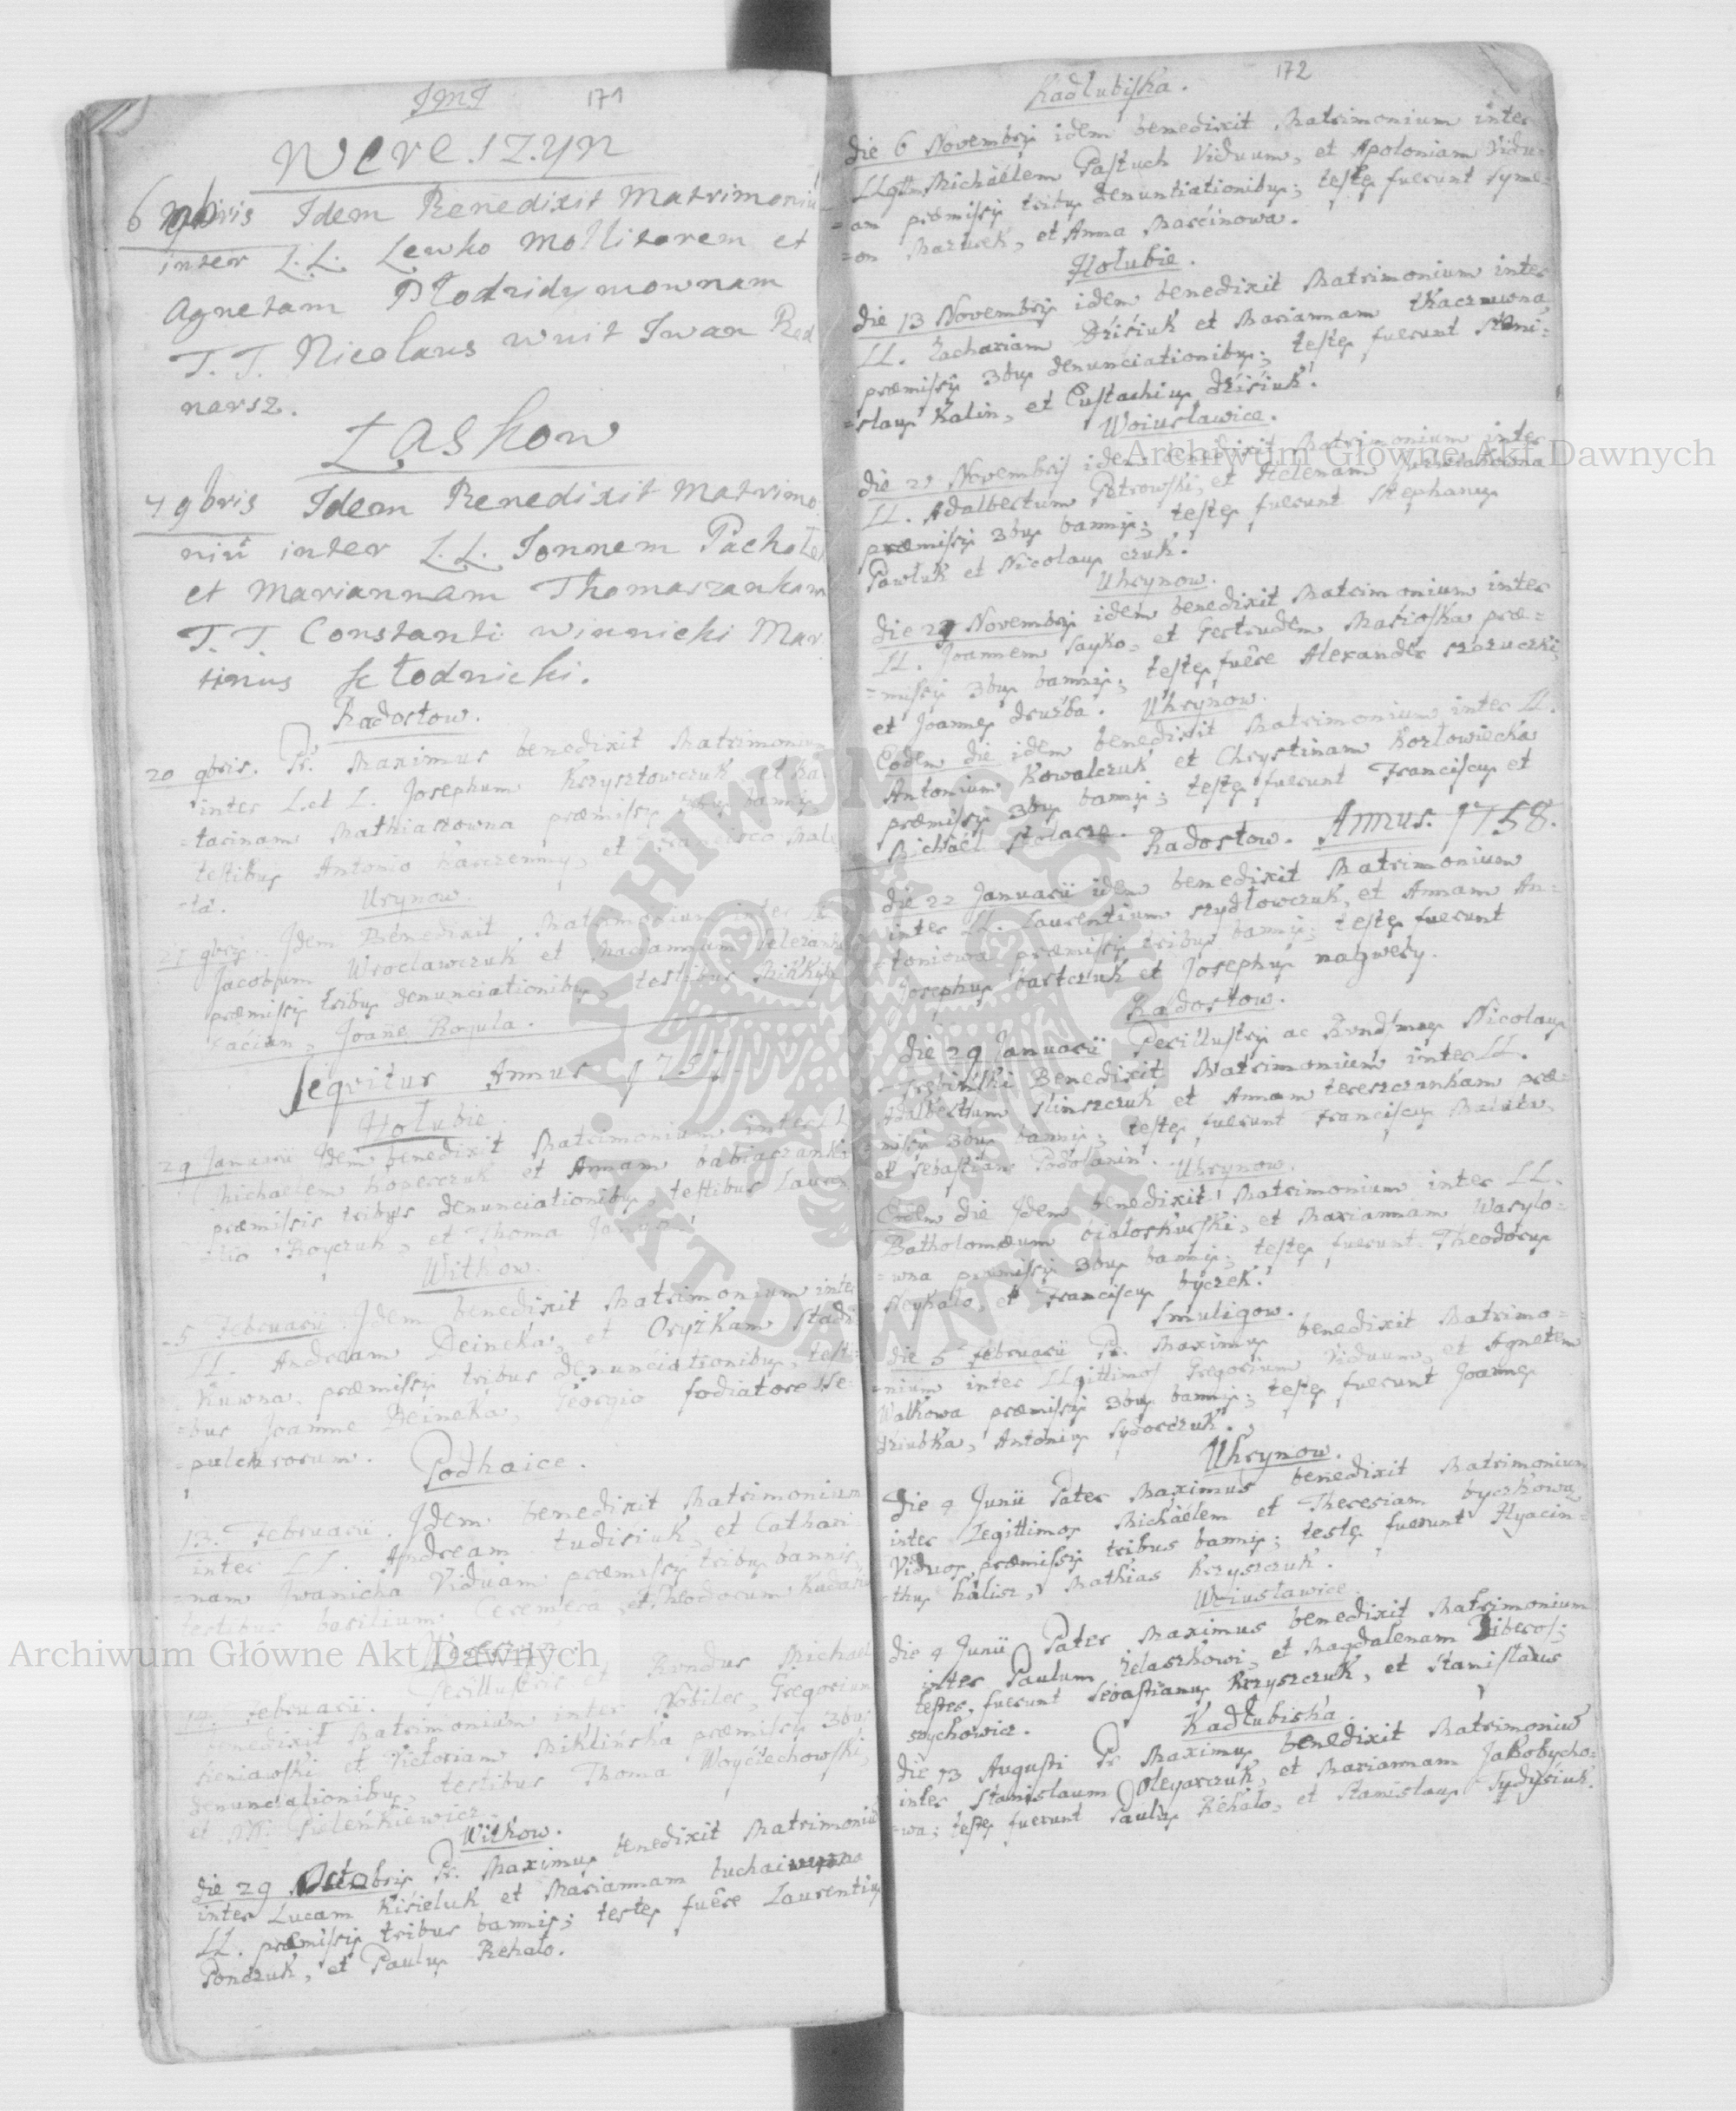 JMJ
171
Wereszyn
6 9bris Idem Benedixit Matrimoniu
inter L.L. Lewko Mollitorem et
Agnetam
T. T. Nicolaus wuit Iwan Bed
narsz.
Łaskow
7 9bris Idem Benedixit Matrimo
niu inter L.L. Ionnem
et Mariannam Thomaszankam
T. T. Constanti winnicki Mar
tinus Skłodnicki.
Radostow.
20 9bris. Pr. Maximus benedixit Matrimonium
inter L. et L. Josephum Krzysztowczuk et Ka
=tarinam Mathiaszowna præmissis 3bus bannis
testibus Antonio et Francisco Male
=ta.
Urynow.
9bris. Idem Benedixit Matrimonium inter LL
Jacobum Wroclawczuk et Mariannam
præmissis tribus denunciationibus, testibus
Joañe Rogula.
Seqvitur Annus 1757
Hołubie.
29 Januarii Idem benedixit Matrimonium inter LL
Michaelem et Annam babiaczanka
præmissis tribus denunciationibus, testibus Lauren
=tio Royczuk, et Thoma Janus.
Witkow.
5 Februarii. Idem benedixit Matrimonium inter
LL. Andream Deineka, et Oryżkam
præmissis tribus denunciationibus, testi=
=bus Joanne Deineka, Georgio fodiatore se=
=pulchrorum.
Podhaice.
13. Februarii. Idem benedixit Matrimonium
inter LL. Andream tudisiuk, et Cathari
=nam Iwanicha Viduam præmissis tribus bannis,
testibus basilium et Theodorum
14. Februarii. Perillustris et Rvndus Michael
benedixit Matrimonium inter Nobiles, Gregorium
sieniawski et Victoriam Miklińska præmissis 3bus
denunciationibus, testibus Thoma Woyciechowski,
et
Witkow.
die 29 Octobris Pr. Maximus benedixit Matrimoniu
inter Lucam Kisieluk et Mariannam
LL. præmissis tribus bannis; testes fuêre Laurentius
Ponczuk, et Paulus Rehalo.
172
Kadłubiska.
die 6 Novembris idem benedixit Matrimonium inter
LLgttm Michaëlem Pastuch Viduum, et Apoloniam Vidu=
=am præmissis tribus denuntiationibus; testes fuerunt Syme=
=on Mazurek, et Anna Marcinowa.
Hołubie.
die 13 Novembris idem benedixit Matrimonium inter
LL. Zachariam Dziśiuk et Mariannam tkaczuwna
præmissis 3bus denunciationibus; testes fuerunt Stani=
=slaus Kalin, et Eustachius dziśiuk.
Woiusławice.
die 21 Novembris idem benedixit Matrimonium inter
LL. Adalbertum Petrowski, et Helenam
præmissis 3bus bannis; testes fuerunt Stephanus
Pawluk et Nicolaus czuk.
Uhrynow.
die 27 Novembris idem benedixit Matrimonium inter
LL. Joannem Sayko, et Gertrudem præ=
=missis 3bus bannis; testes fuêre Alexander
et Joannes druzba. Uhrynow.
Eodem die idem benedixit Matrimonium inter LL.
Antonium Kowalczuk et Chrystinam Kozłowiecka
præmissis 3bus bannis; testes fuerunt Franciscus et
Michaël stolarze. Radostow. Annus. 1758.
die 22 Januarii idem benedixit Matrimonium
inter LL. Laurentium szydłowczuk, et Annam An=
=toniowa præmissis tribus bannis; testes fuerunt
Josephus bartczuk et Josephus
Radostow.
die 29 Januarii Perillustris ac Rvndsmus Nicolaus
Benedixit Matrimonium inter LL.
Adalbertum slinszczuk et Annam tereszczankam præ=
=missis 3bus bannis; testes fuerunt Franciscus Maluta,
et Sebastian Podolanin. Uhrynow.
Eodem die Idem benedixit Matrimonium inter LL.
Batholomæum białoskurski, et Mariannam Wasylo=
=wna præmissis 3bus bannis; testes fuerunt Theodorus
Neykało, et Franciscus byczek.
Smuligow.
die 5 februarii Pr. Maximus benedixit Matrimo=
=nium inter LLgittimos Gregorium Viduum, et Agnetem
Walkowa præmissis 3bus bannis; testes fuerunt Joannes
dziubka, Antonius Sydorczuk.
Uhrynow.
die 4 Junii Pater Maximus benedixit Matrimonium
inter Legittimos Michaëlem et Theresiam byczkowa
Viduos, præmissis tribus bannis; testes fuerunt Hyacin=
=thus halisz, Mathias Krzyszczuk.
Woiusławice
die 4 Junii Pater Maximus benedixit Matrimonium
inter Paulum Zelaszkowi, et Magdalenam Liberos;
testes, fuerunt Sebastianus Krzyszczuk, et Stanislaus
szychowicz.
Kadłubiska.
die 13 Augusti Pr Maximus benedixit Matrimoniu
inter Stanislaum Oleyarczuk, et Mariannam Jakobycho=
=wa; testes fuerunt Paulus Rehalo, et Stanislaus Sydysiuk.
Archiwum Główne Akt Dawnych
Archiwum Główne Akt Dawnych
ARCHIWUM GŁÓWNE AKT DAWNYCH